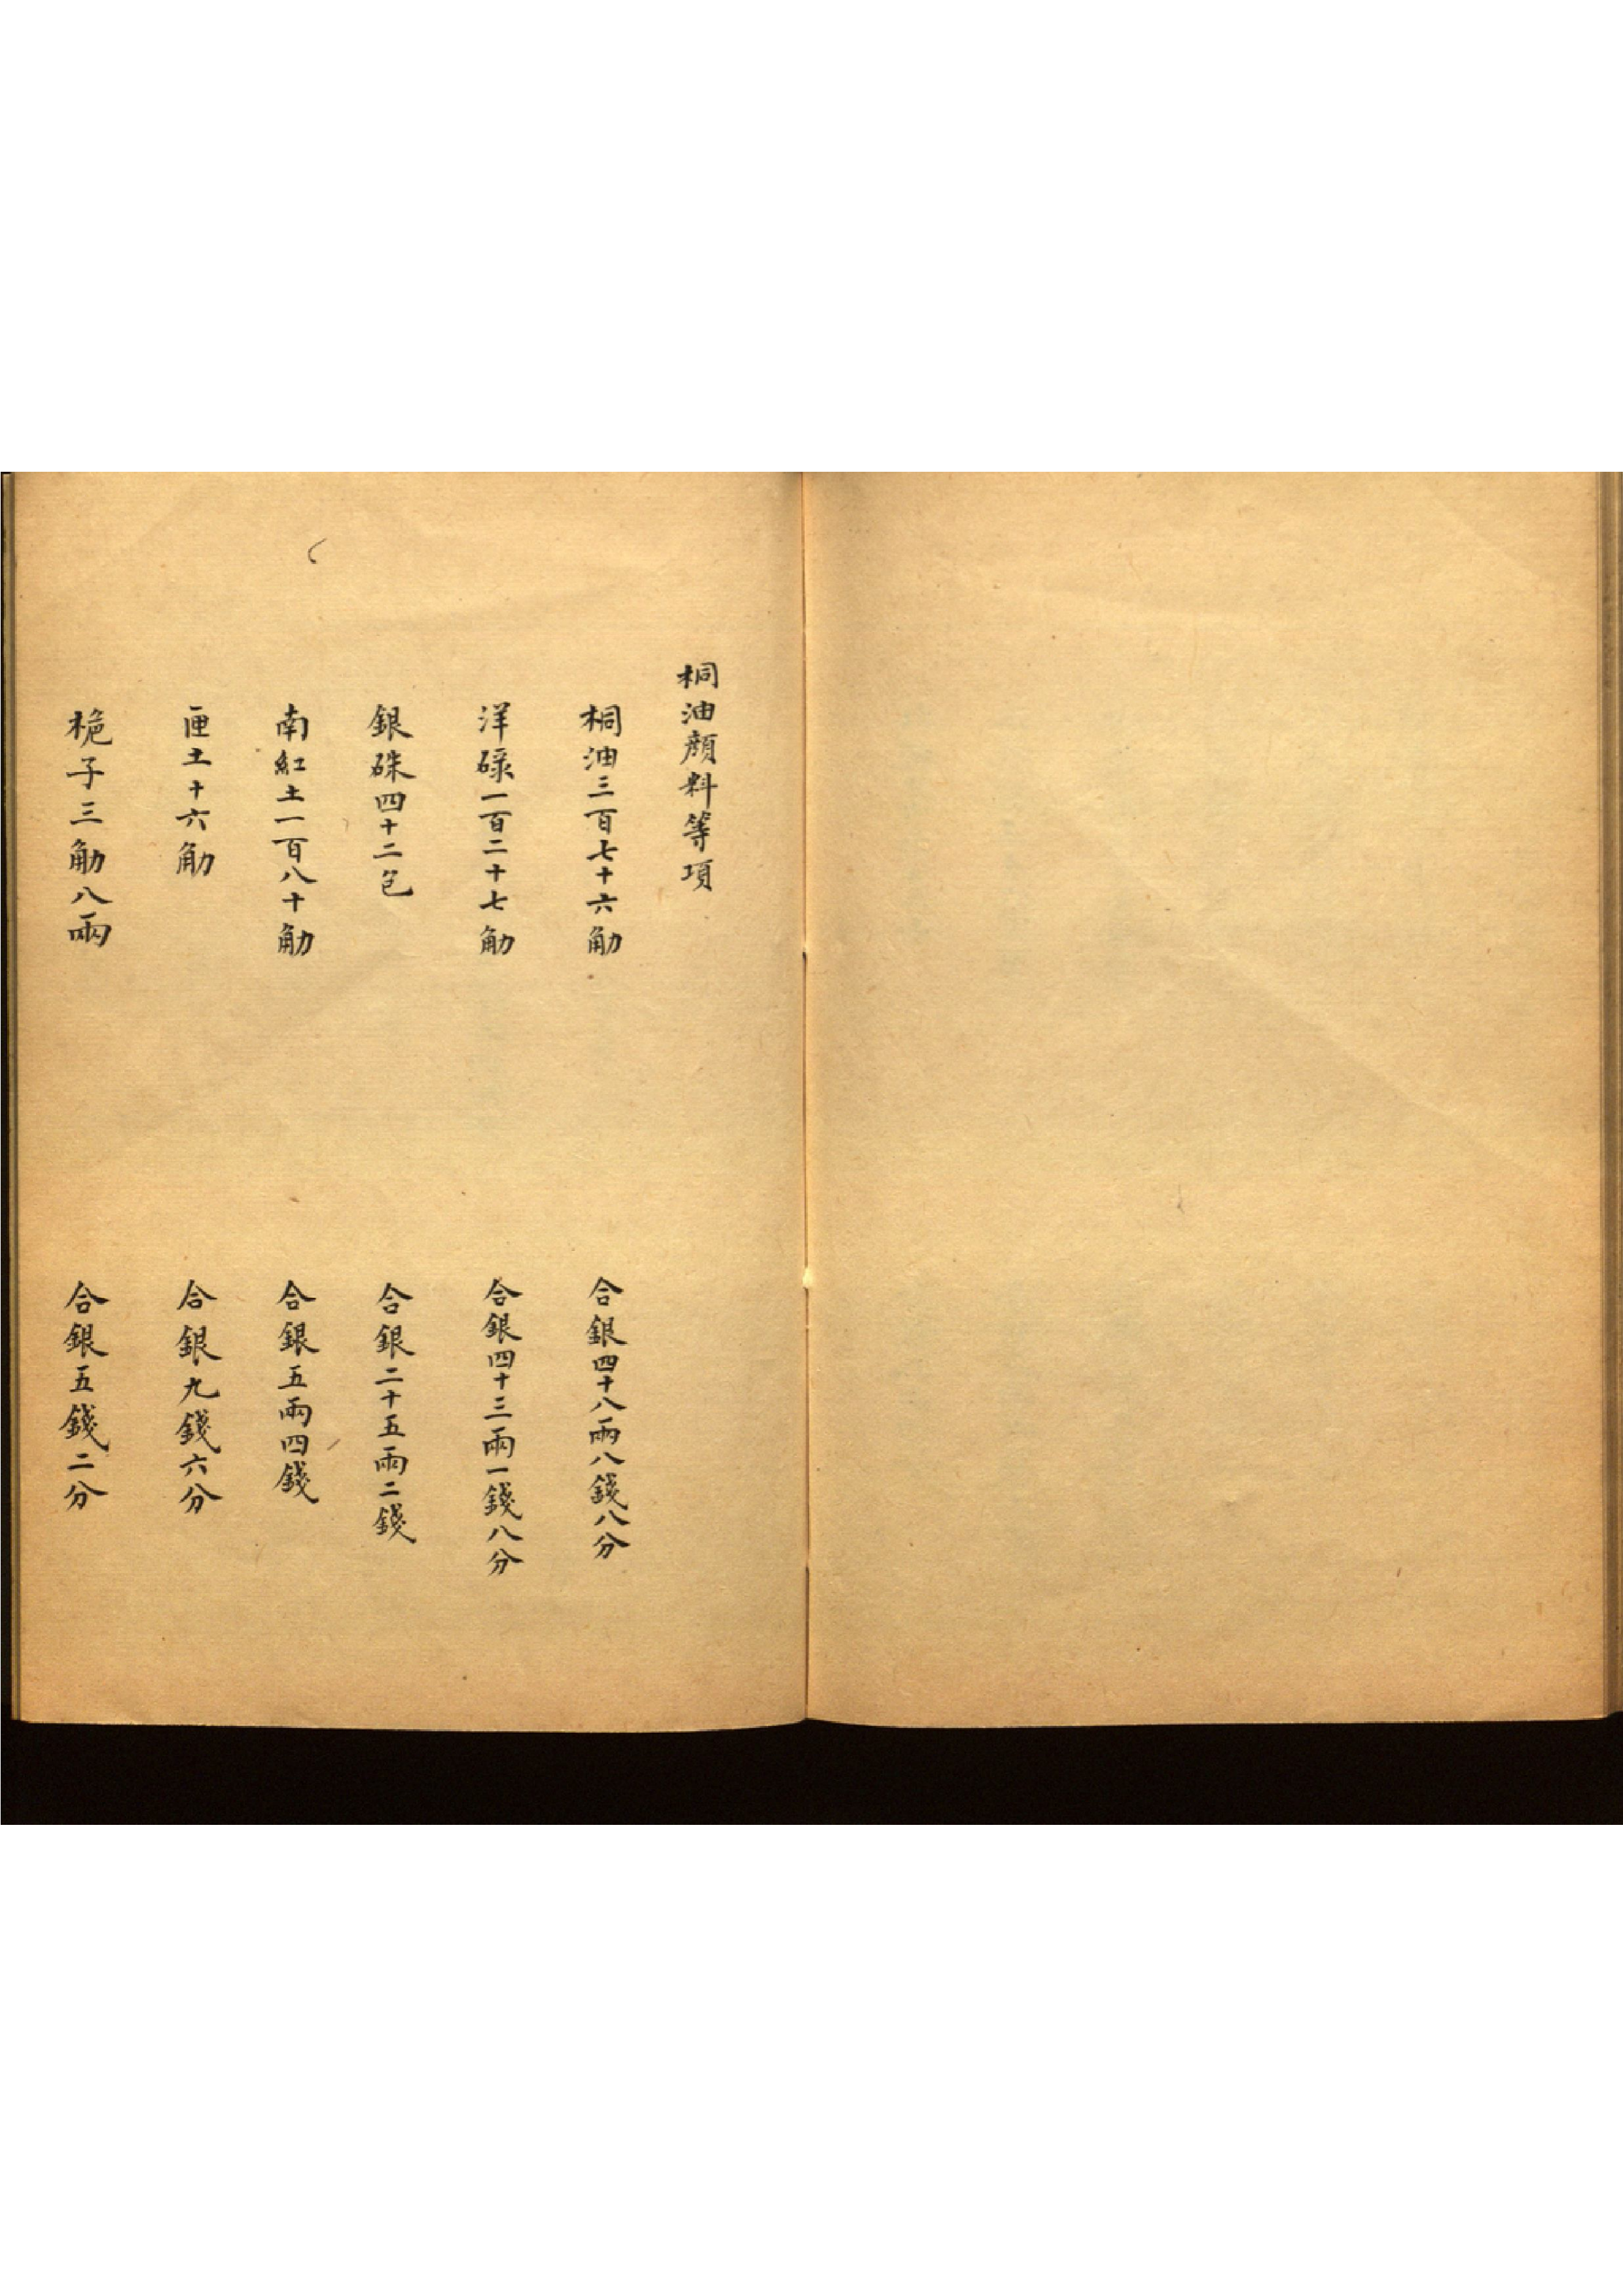 桐油顏料等項
桐油三百七十六觔
合銀四十八兩八錢八分
洋碌一百二十七觔
合銀四十三兩一錢八分
銀硃四十二包
合銀二十五兩二錢
南紅土一百八十觔
合銀五兩四錢
土十六觔
合銀九錢六分
梔子三觔八兩
合銀五錢二分